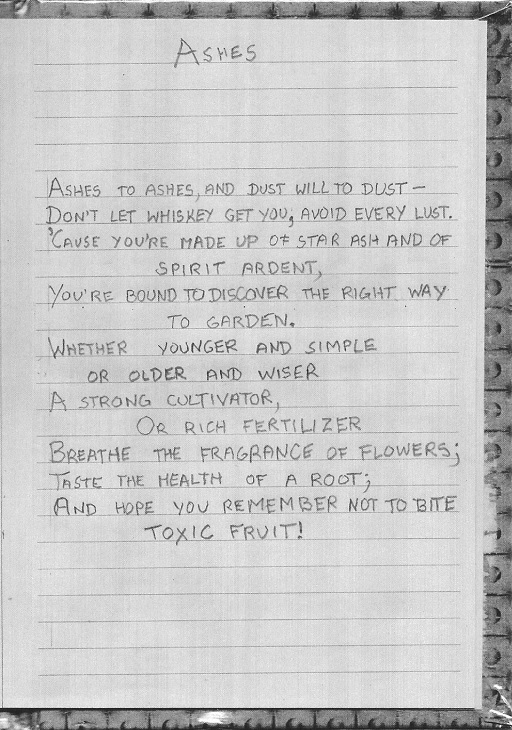 ASHES
ASHES TO ASHES, AND DUST WILL TO DUST –
DON'T LET WHISKEY GET YOU, AVOID EVERY LUST.
'CAUSE YOU'RE MADE UP OF STAR ASH AND OF
SPIRIT ARDENT,
YOU'RE BOUND TO DISCOVER THE RIGHT WAY
TO GARDEN.
WHETHER YOUNGER AND SIMPLE
OR OLDER AND WISER
A STRONG CULTIVATOR,
OR RICH FERTILIZER
BREATHE THE FRAGRANCE OF FLOWERS;
TASTE THE HEALTH OF A ROOT;
AND HOPE YOU REMEMBER NOT TO BITE
TOXIC FRUIT!